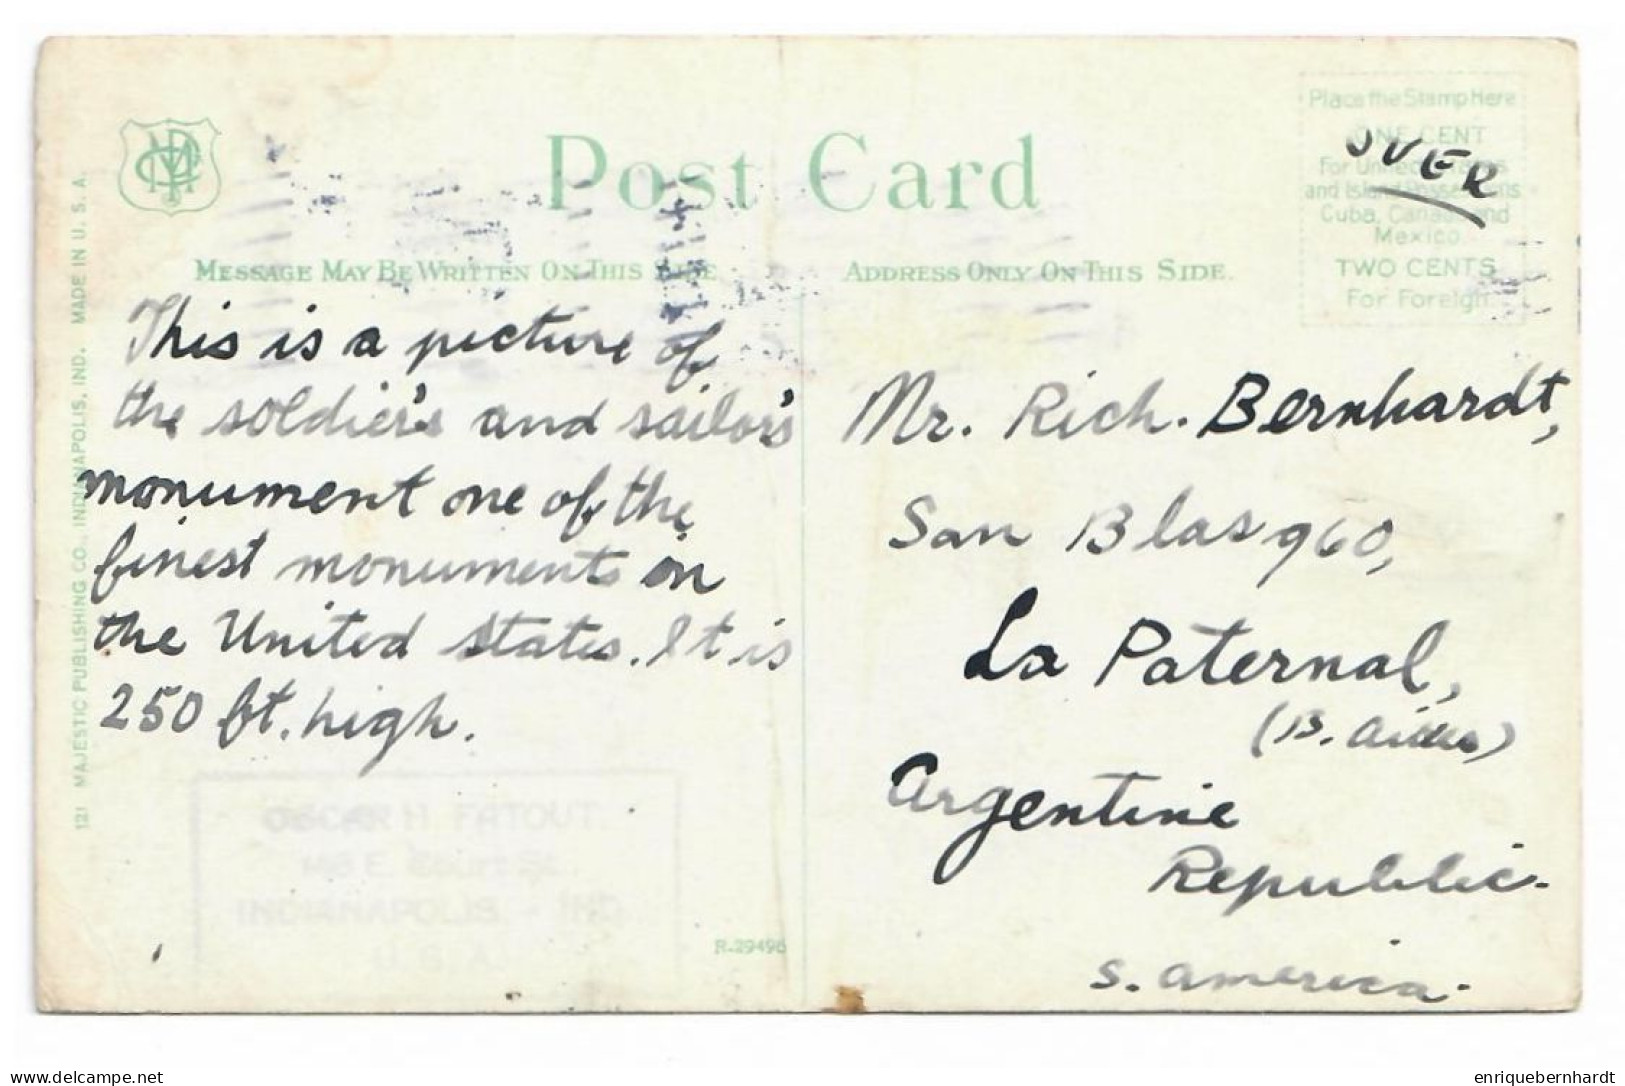 Post Card
Place the Stamp Here
ONE CENT
For United
and Island Possessions
Cuba, Canada and
Mexico
TWO CENTS
For Foreign
OVER
MESSAGE MAY BE WRITTEN ON THIS SIDE
ADDRESS ONLY ON THIS SIDE.
This is a picture of
the soldier's and sailor's
monument one of the
finest monuments in
the United States. It is
250 ft. high.
Mr. Rich. Bernhardt,
San Blas 960,
La Paternal,
(B. Aires)
Argentine
Republic.
S. America.
OSCAR H. FATOUT.
E. Court St.
INDIANAPOLIS - IND
U.S.A.
R-29496
121 MAJESTIC PUBLISHING CO., INDIANAPOLIS, IND. MADE IN U.S.A.
delcampe.net
enriquebernhardt